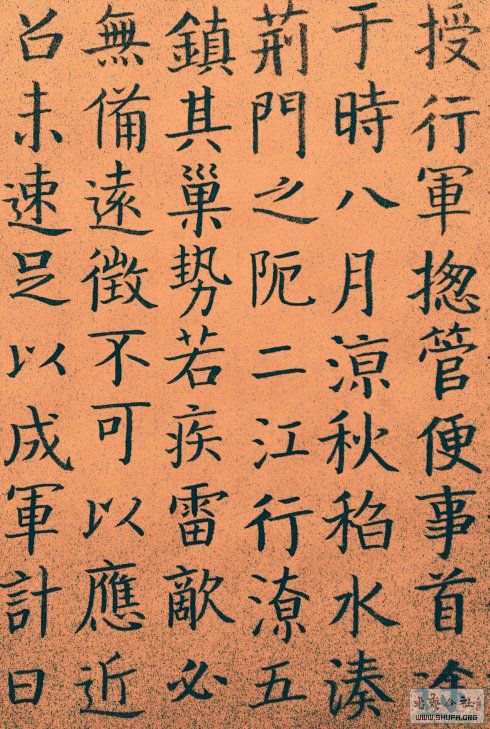 授行軍揔管便事首途
于時八月涼秋稻水湊
荊門之阨二江行潦五
鎮其巢势若疾雷敵必
無備遠徵不可以應近
召未速足以成軍計日
WWW.SHUFA.ORG